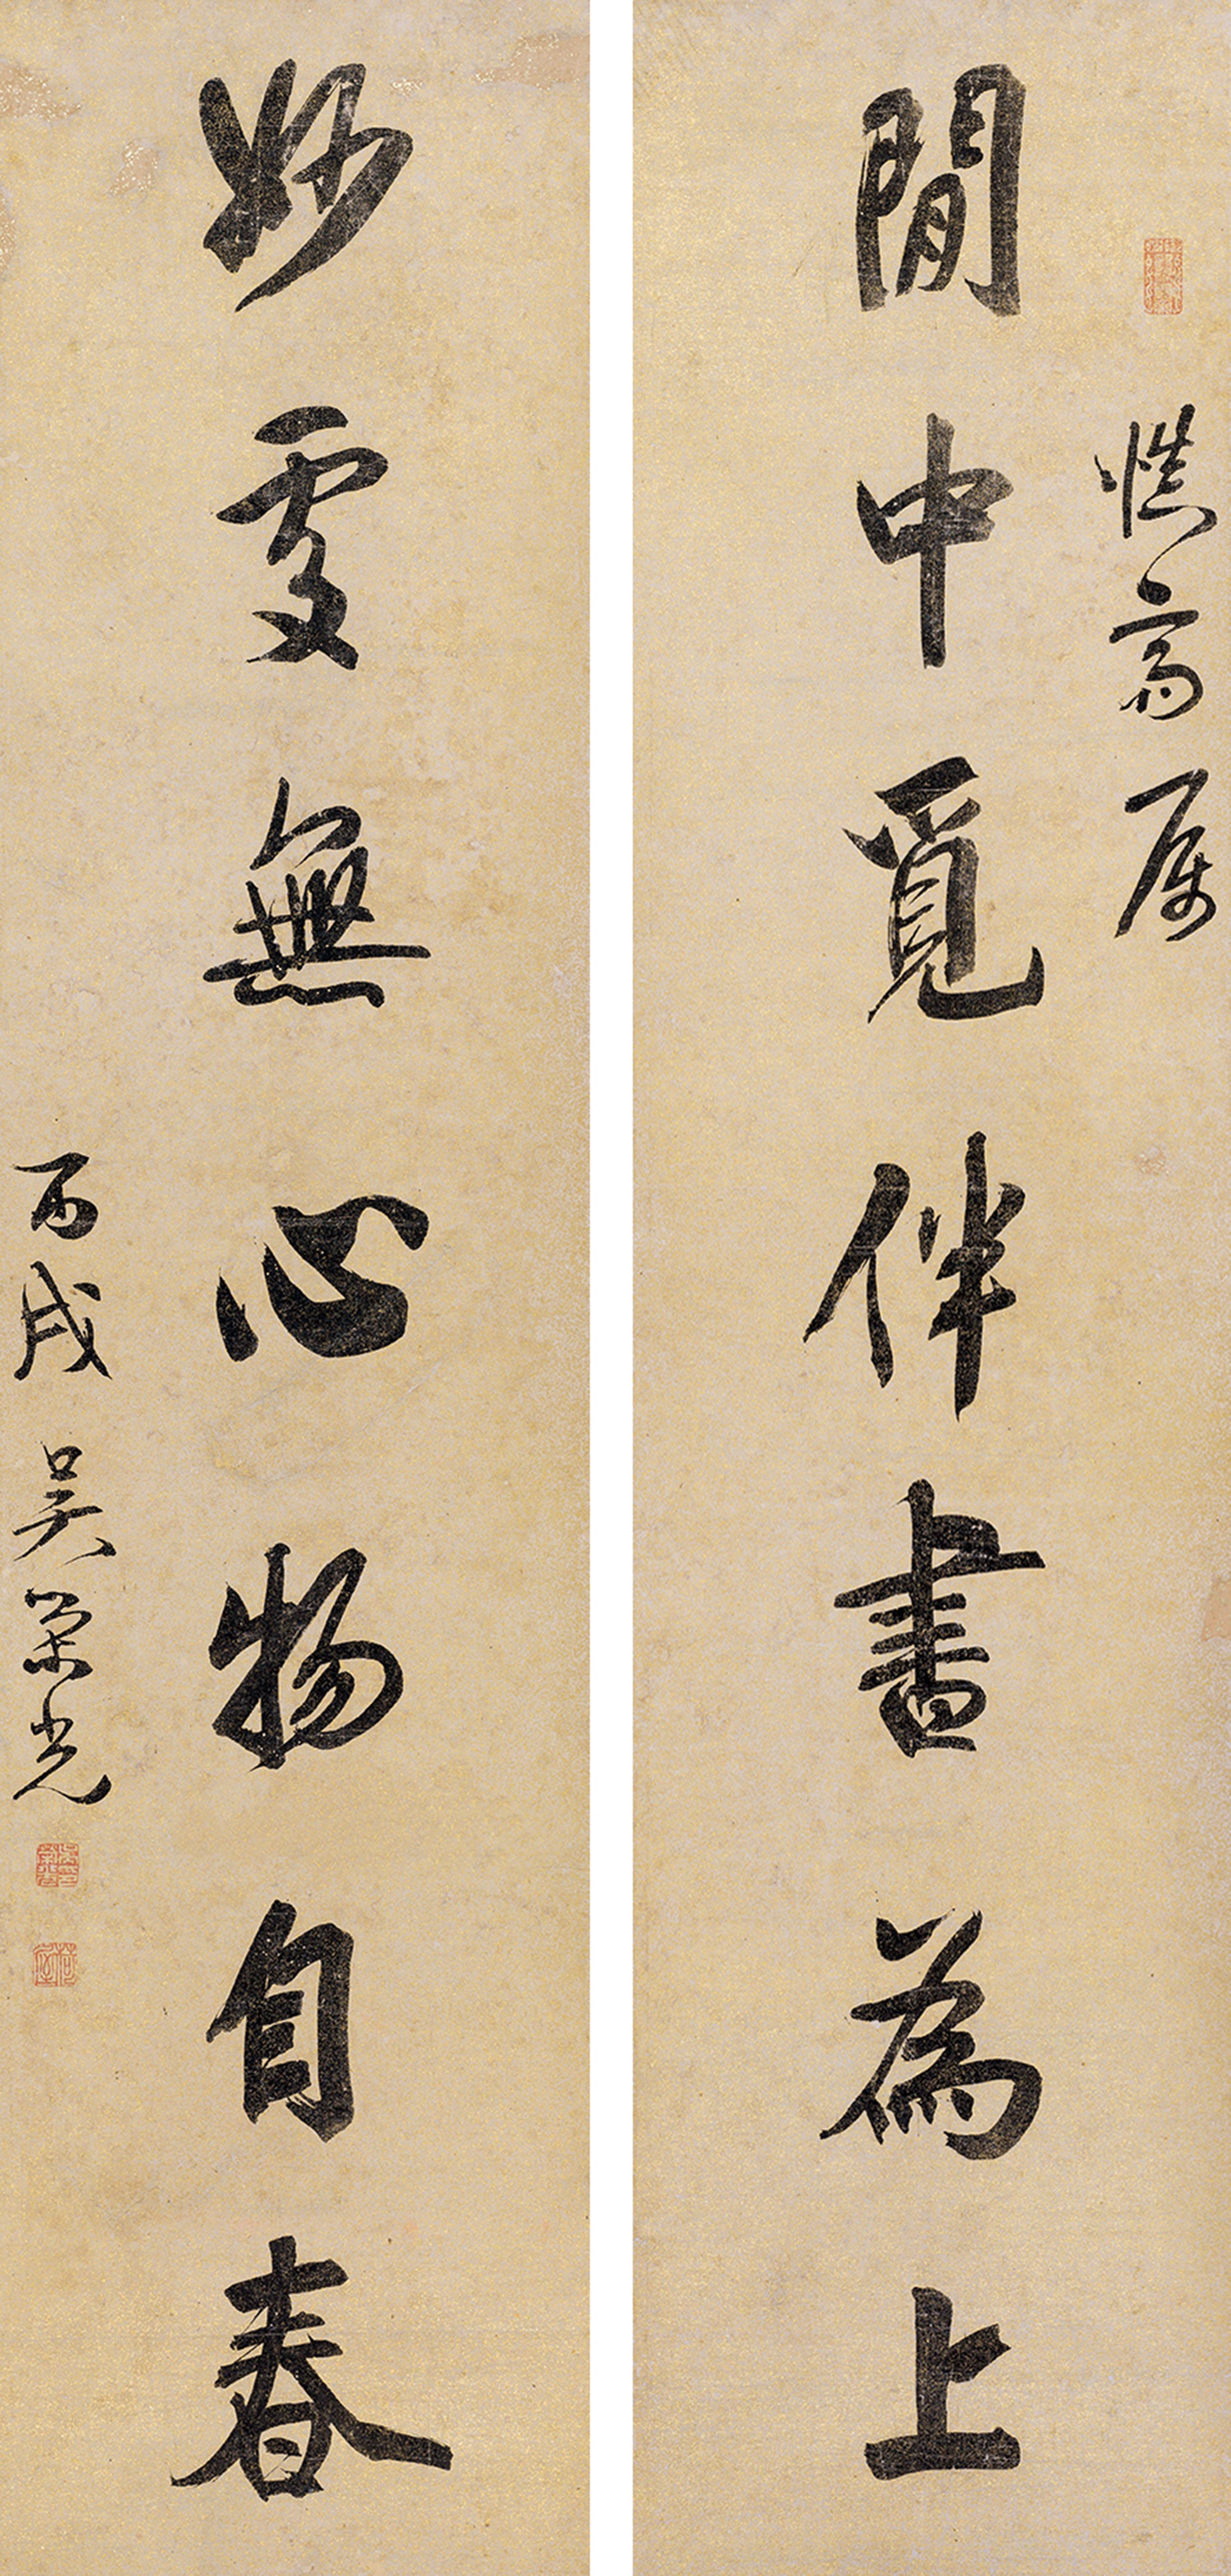 慎齋屬
閒中覓伴書為上
妙處無心物自春
丙戌 吳榮光